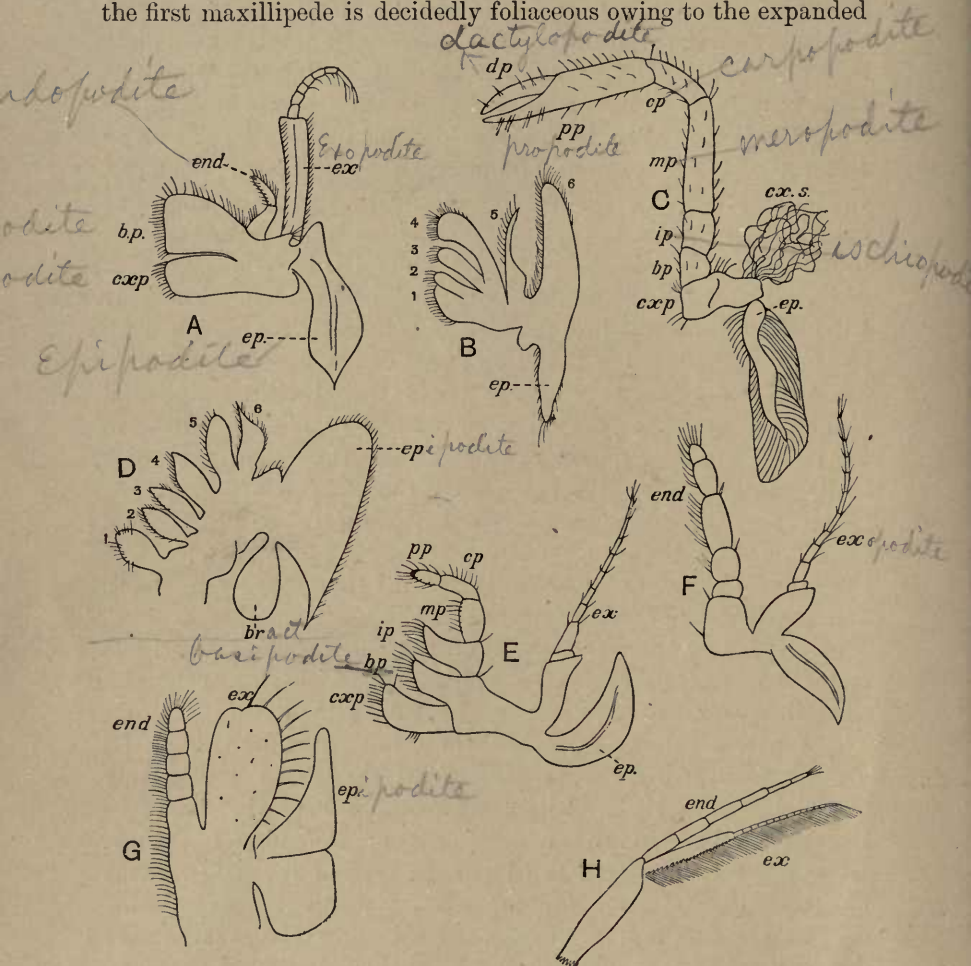 the first maxillipede is decidedly foliaceous owing to the expanded
dactylopodite
carpopodite
dp
cp
pp
propodite
meropodite
mp
C
cx. s.
ip
ischiopod
bp
cxp
ep.
ndopodite
end
Exopodite
ex
b.p.
odite
cxp
odite
A
ep.
Epipodite
4
3
2
1
5
6
B
ep.
D
1
2
3
4
5
6
epipodite
br act
basipodite
pp
cp
mp
ip
bp
cxp
E
ex
ep.
end
F
exopodite
end
ex
epipodite
G
end
H
ex